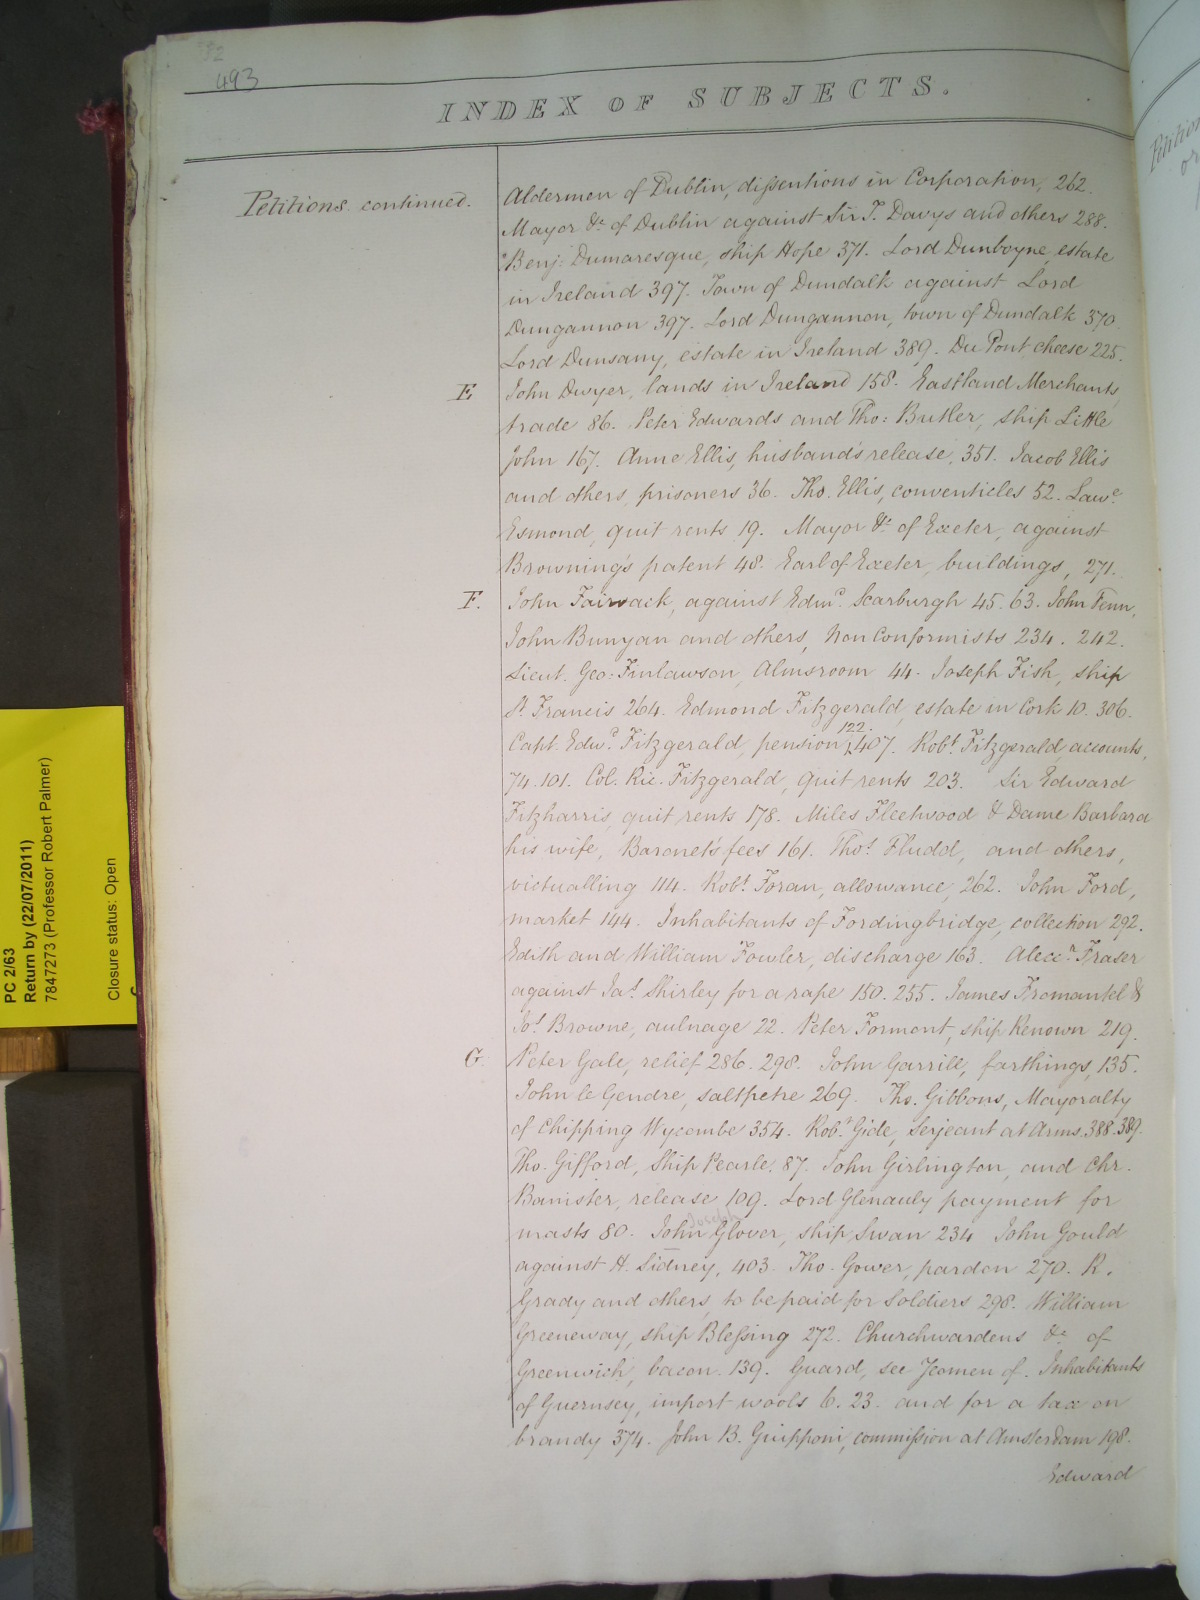 493
INDEX OF SUBJECTS.
Petitions continued.
Aldermen of Dublin, dissentions in Corporation, 262.
Mayor &c. of Dublin against Sir T. Davys and others 288.
Benj: Dumaresque, ship Hope 371. Lord Dunboyne, estate
in Ireland 397. Town of Dundalk against Lord
Dungannon 397. Lord Dungannon, town of Dundalk 370.
Lord Dunsany, estate in Ireland 389. Du Pont cheese 225.
E John Dwyer, lands in Ireland 158. Eastland Merchants,
trade 86. Peter Edwards and Tho: Butler, ship Little
John 167. Anne Ellis, husband's release, 351. Jacob Ellis
and others, prisoners 36. Tho. Ellis, conventicles 52. Lawe.
Esmond, quit rents 19. Mayor &c. of Exeter, against
Browning's patent 48. Earl of Exeter, buildings, 271.
F. John Fairvack, against Edmd. Scarburgh 45. 63. John Fenn,
John Bunyan and others, Non Conformists 234. 242.
Lieut. Geo: Finlawson, Almsroom 44. Joseph Fish, ship
St. Francis 264. Edmond Fitzgerald, estate in Cork 10. 306.
122.
Capt. Edwd. Fitzgerald, pension 407. Robt. Fitzgerald, accounts,
74. 101. Col. Ric. Fitzgerald, quit rents 203. Sir Edward
Fitzharris, quit rents 178. Miles Fleetwood & Dame Barbara
his wife, Baronet's fees 161. Thos. Fludd, and others,
victualling 114. Robt. Foran, allowance, 262. John Ford,
market 144. Inhabitants of Fordingbridge, collection 292.
Edith and William Fowler, discharge 163. Alexr. Fraser
against Jas. Shirley for a rape 150. 255. James Fromantel &
Jos. Browne, aulnage 22. Peter Formont, ship Renown 219.
G. Peter Gale, relief 286. 298. John Garrill, farthings, 135.
John le Gendre, saltpetre 269. Tho. Gibbons, Mayoralty
of Chipping Wycombe 354. Robt. Gide, Serjeant at Arms. 388. 389.
Tho. Gifford, Ship Pearle. 87. John Girlington, and Chr.
Banister, release 109. Lord Glenauly payment for
Joseph
masts 80. John Glover, ship Swan 234 John Gould
against H. Sidney, 403. Tho. Gower, pardon 270. R.
Grady and others, to be paid for Soldiers 298. William
Greeneway, ship Blessing 272. Churchwardens &c. of
Greenwich, bacon. 139. Guard, see Yeomen of. Inhabitants
of Guernsey, import wools 6. 23. and for a tax on
brandy 374. John B. Guipponi, commission at Amsterdam 198.
Edward
PC 2/63
Return by (22/07/2011)
7847273 (Professor Robert Palmer)
Closure status: Open
Petition
or